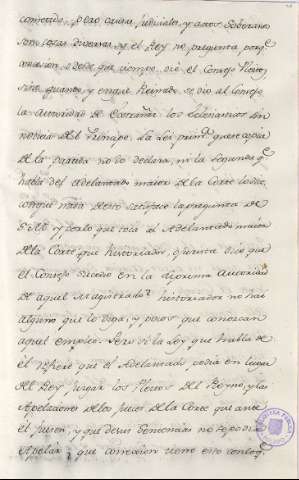 cometido, pero causas judiciales, y actos soberanos
son cosas diversas, y el Rey no pregunta porq.e
ocasion, o desde que tiempo dio el Consejo Pleitos,
sino quando, y en que Reinado se dio al Consejo
la Autoridad de estrañar los Eclesiasticos sin
noticia del Principe. La lei prim.a que se copia
de la partida no lo declara, ni la segunda q.e
habla del Adelantado maior de la Corte lo dice,
conque nada de esto satisface la pregunta de
y por lo que toca al Adelantado maior
de la Corte que historiador, o jurista dijo que
el Consejo sucedio en la suprema autoridad
de aquel Magistrado? historiador no hai
alguno que lo diga, y pocos que conozcan
aquel empleo. Pero si la Ley, que habla de
él refiere que el Adelantado podia en lugar
del Rey juzgar los Pleitos del Reyno, y las
Apelaciones de los jueces de la Corte que ante
él fuesen, y que de sus sentencias no se podia
Apelar; que conexion tiene esto con lo q.e